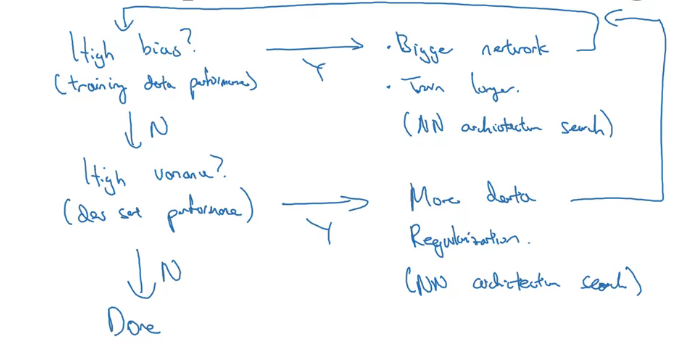 High bias?
(training data performance)
Y
· Bigger network
· Train longer.
(NN architecture search)
N
High variance?
(dev set performance)
Y
More data
Regularization.
(NN architecture search)
N
Done